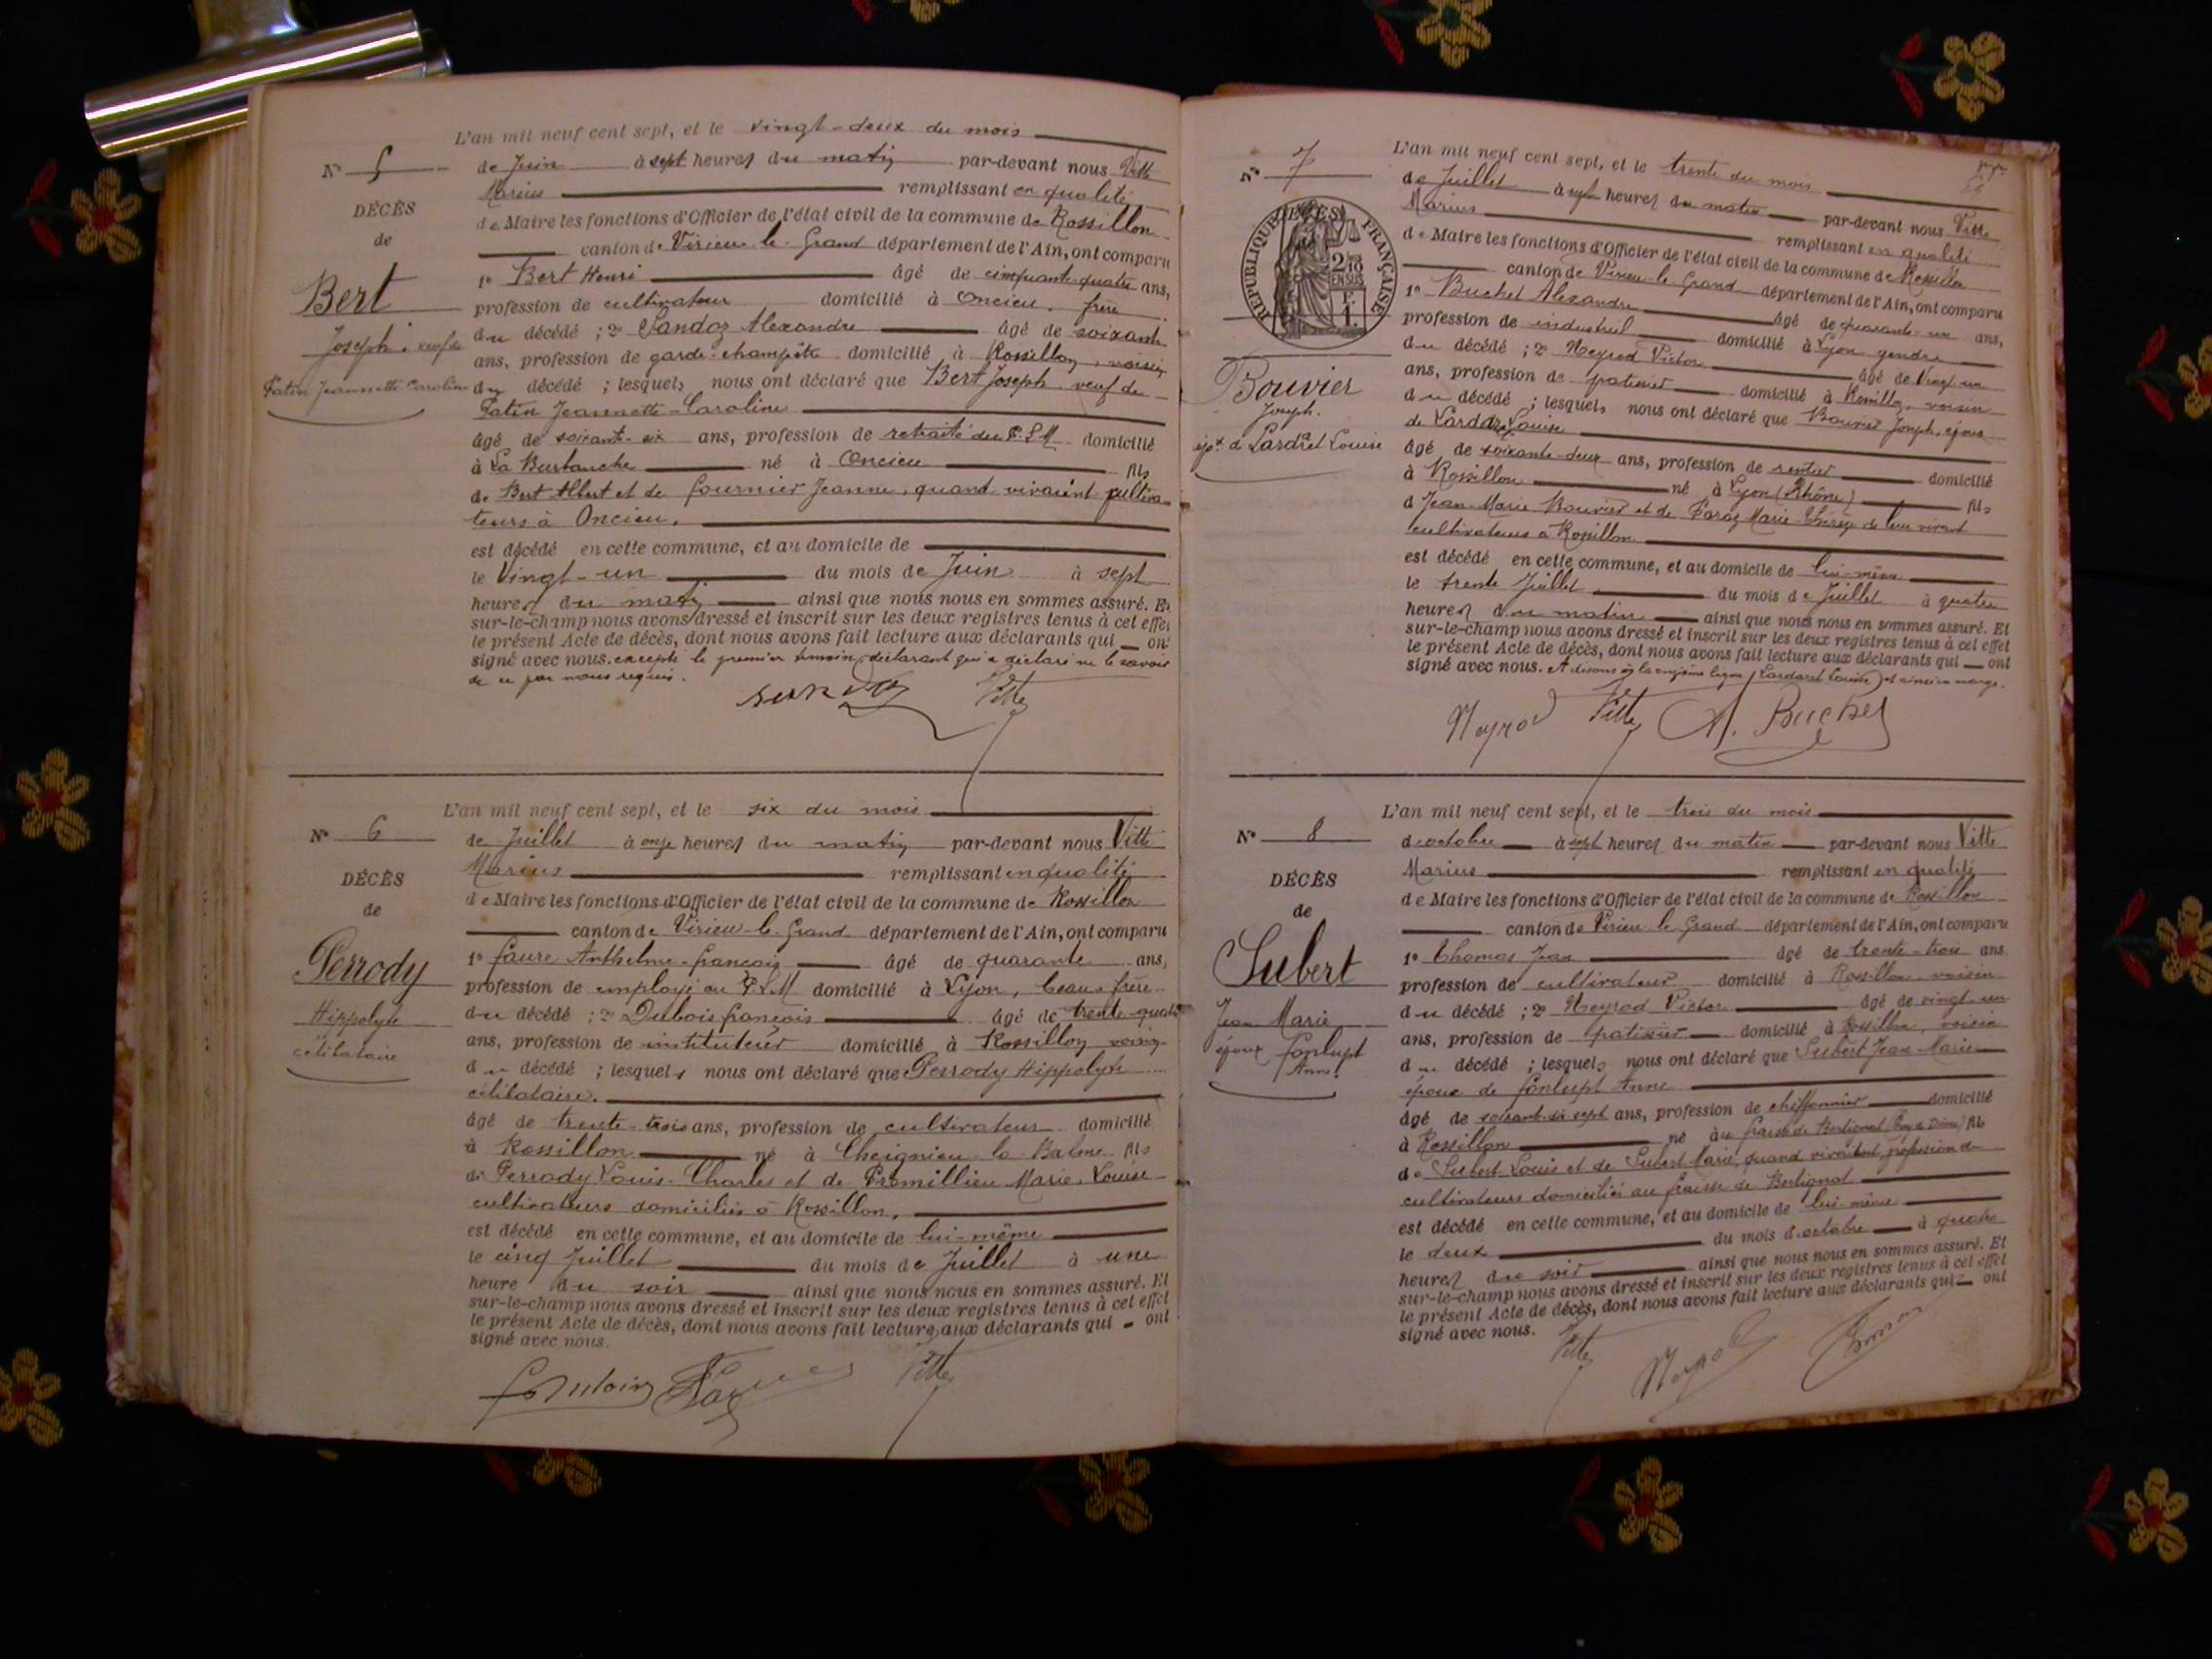 L'an mil neuf cent sept, et le vingt-deux du mois
N° 5 de Juin à sept heures du matin par-devant nous Vitte
Marius remplissant en qualité
DÉCÈS
de Maire les fonctions d'Officier de l'état civil de la commune de Rossillon
de
canton de Virieu-le-Grand département de l'Ain, ont comparu
1° Bert Henri âgé de cinquante-quatre ans,
Bert
profession de cultivateur domicilié à Oncieu, frère
Joseph, veuf de
du décédé ; 2° Sandoz Alexandre âgé de soixante
ans, profession de garde-champête domicilié à Rossillon, voisin
Fatin Jeannette Caroline
du décédé ; lesquels nous ont déclaré que Bert Joseph, veuf de
Fatin Jeannette-Caroline
âgé de soixante-six ans, profession de retraité du P.L.M domicilié
à La Burbanche né à Oncieu fils
de Bert Albert et de Fournier Jeanne, quand vivaient cultiva-
teurs à Oncieu.
est décédé en cette commune, et au domicile de
le Vingt-un du mois de Juin à sept
heures du matin ainsi que nous nous en sommes assuré. Et
sur-le-champ nous avons dressé et inscrit sur les deux registres tenus à cet effet
le présent Acte de décès, dont nous avons fait lecture aux déclarants qui ont
signé avec nous. excepté le premier témoin déclarant qui a déclaré ne le savoir
de ce par nous requis.
Vitte
L'an mil neuf cent sept, et le six du mois
N° 6 de Juillet à onze heures du matin par-devant nous Vitte
Marius remplissant en qualité
DÉCÈS
de Maire les fonctions d'Officier de l'état civil de la commune de Rossillon
de
canton de Virieu-le-Grand département de l'Ain, ont comparu
1° Faure Anthelme-François âgé de quarante ans,
Perrody
profession de employé au P.L.M domicilié à Lyon, beau-frère
Hippolyte
du décédé ; 2° Dubois François âgé de trente-quatre
célibataire
ans, profession de instituteur domicilié à Rossillon voisin
du décédé ; lesquels nous ont déclaré que Perrody Hippolyte
célibataire.
âgé de trente-trois ans, profession de cultivateur domicilié
à Rossillon né à Cheignieu-la-Balme fils
de Perrody Louis-Charles et de Promillieu Marie-Louise
cultivateurs domiciliés à Rossillon,
est décédé en cette commune, et au domicile de lui-même
le cinq Juillet du mois de Juillet à une
heure du soir ainsi que nous nous en sommes assuré. Et
sur-le-champ nous avons dressé et inscrit sur les deux registres tenus à cet effet
le présent Acte de décès, dont nous avons fait lecture aux déclarants qui ont
signé avec nous.
Vitte
L'an mil neuf cent sept, et le trente du mois
N° 7 de Juillet à sept heures du matin par-devant nous Vitte
Marius remplissant en qualité
DÉCÈS
RÉPUBLIQUE FRANÇAISE
2/10 EN SUS
de Maire les fonctions d'Officier de l'état civil de la commune de Rossillon
canton de Virieu-le-Grand département de l'Ain, ont comparu
1° Buchet Alexandre âgé de quarante-un ans,
profession de industriel domicilié à Lyon gendre
du décédé ; 2° Neyrod Victor âgé de Vingt-un
ans, profession de patissier domicilié à Rossillon, voisin
Bouvier
Joseph.
ép.x de Lardret Louise
du décédé ; lesquels nous ont déclaré que Bouvier Joseph, époux
de Louise
âgé de soixante-deux ans, profession de rentier domicilié
à Rossillon né à Lyon (Rhône) fils
d Jean-Marie Bouvier et de Marie-Thérèse de leur vivant
cultivateurs à Rossillon
est décédé en cette commune, et au domicile de lui-même
le trente Juillet du mois de Juillet à quatre
heures du matin ainsi que nous nous en sommes assuré. Et
sur-le-champ nous avons dressé et inscrit sur les deux registres tenus à cet effet
le présent Acte de décès, dont nous avons fait lecture aux déclarants qui ont
signé avec nous.
Neyrod Vitte A. Buchet
L'an mil neuf cent sept, et le trois du mois
N° 8 d'octobre à sept heures du matin par-devant nous Vitte
Marius remplissant en qualité
DÉCÈS
de Maire les fonctions d'Officier de l'état civil de la commune de Rossillon
de
canton de Virieu-le-Grand département de l'Ain, ont comparu
1° Thomas Jean âgé de trente-trois ans
Subert
profession de cultivateur domicilié à Rossillon voisin
Jean Marie
du décédé ; 2° Neyrod Victor âgé de vingt-un
époux Fonlupt
Anne.
ans, profession de patissier domicilié à Rossillon, voisin
du décédé ; lesquels nous ont déclaré que Subert Jean-Marie
époux de Fonlupt Anne
âgé de soixante-dix-sept ans, profession de chiffonnier domicilié
à Rossillon né au Fraisse de Bertignat (Puy de Dôme) fils
de Subert Louis et de Subert Marie, quand vivaient, profession de
cultivateurs domiciliés au Fraisse de Bertignat
est décédé en cette commune, et au domicile de lui-même
le deux du mois d'octobre à quatre
heures du soir ainsi que nous nous en sommes assuré. Et
sur-le-champ nous avons dressé et inscrit sur les deux registres tenus à cet effet
le présent Acte de décès, dont nous avons fait lecture aux déclarants qui ont
signé avec nous.
Vitte Neyrod Thomas